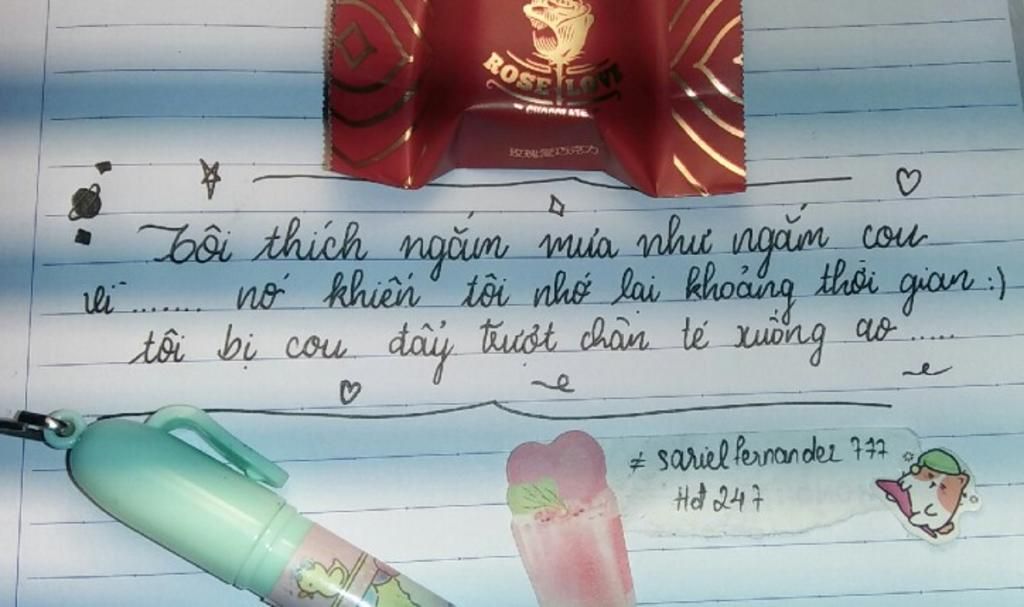 ROSE LOVE
CHOCOLATE
Tôi thích ngắm mưa như ngắm cou
vì ....... nó khiến tôi nhớ lại khoảng thời gian :)
tôi bị cou đẩy trượt chân té xuống ao .....
≠ sarielfernandez 777
Hd 247